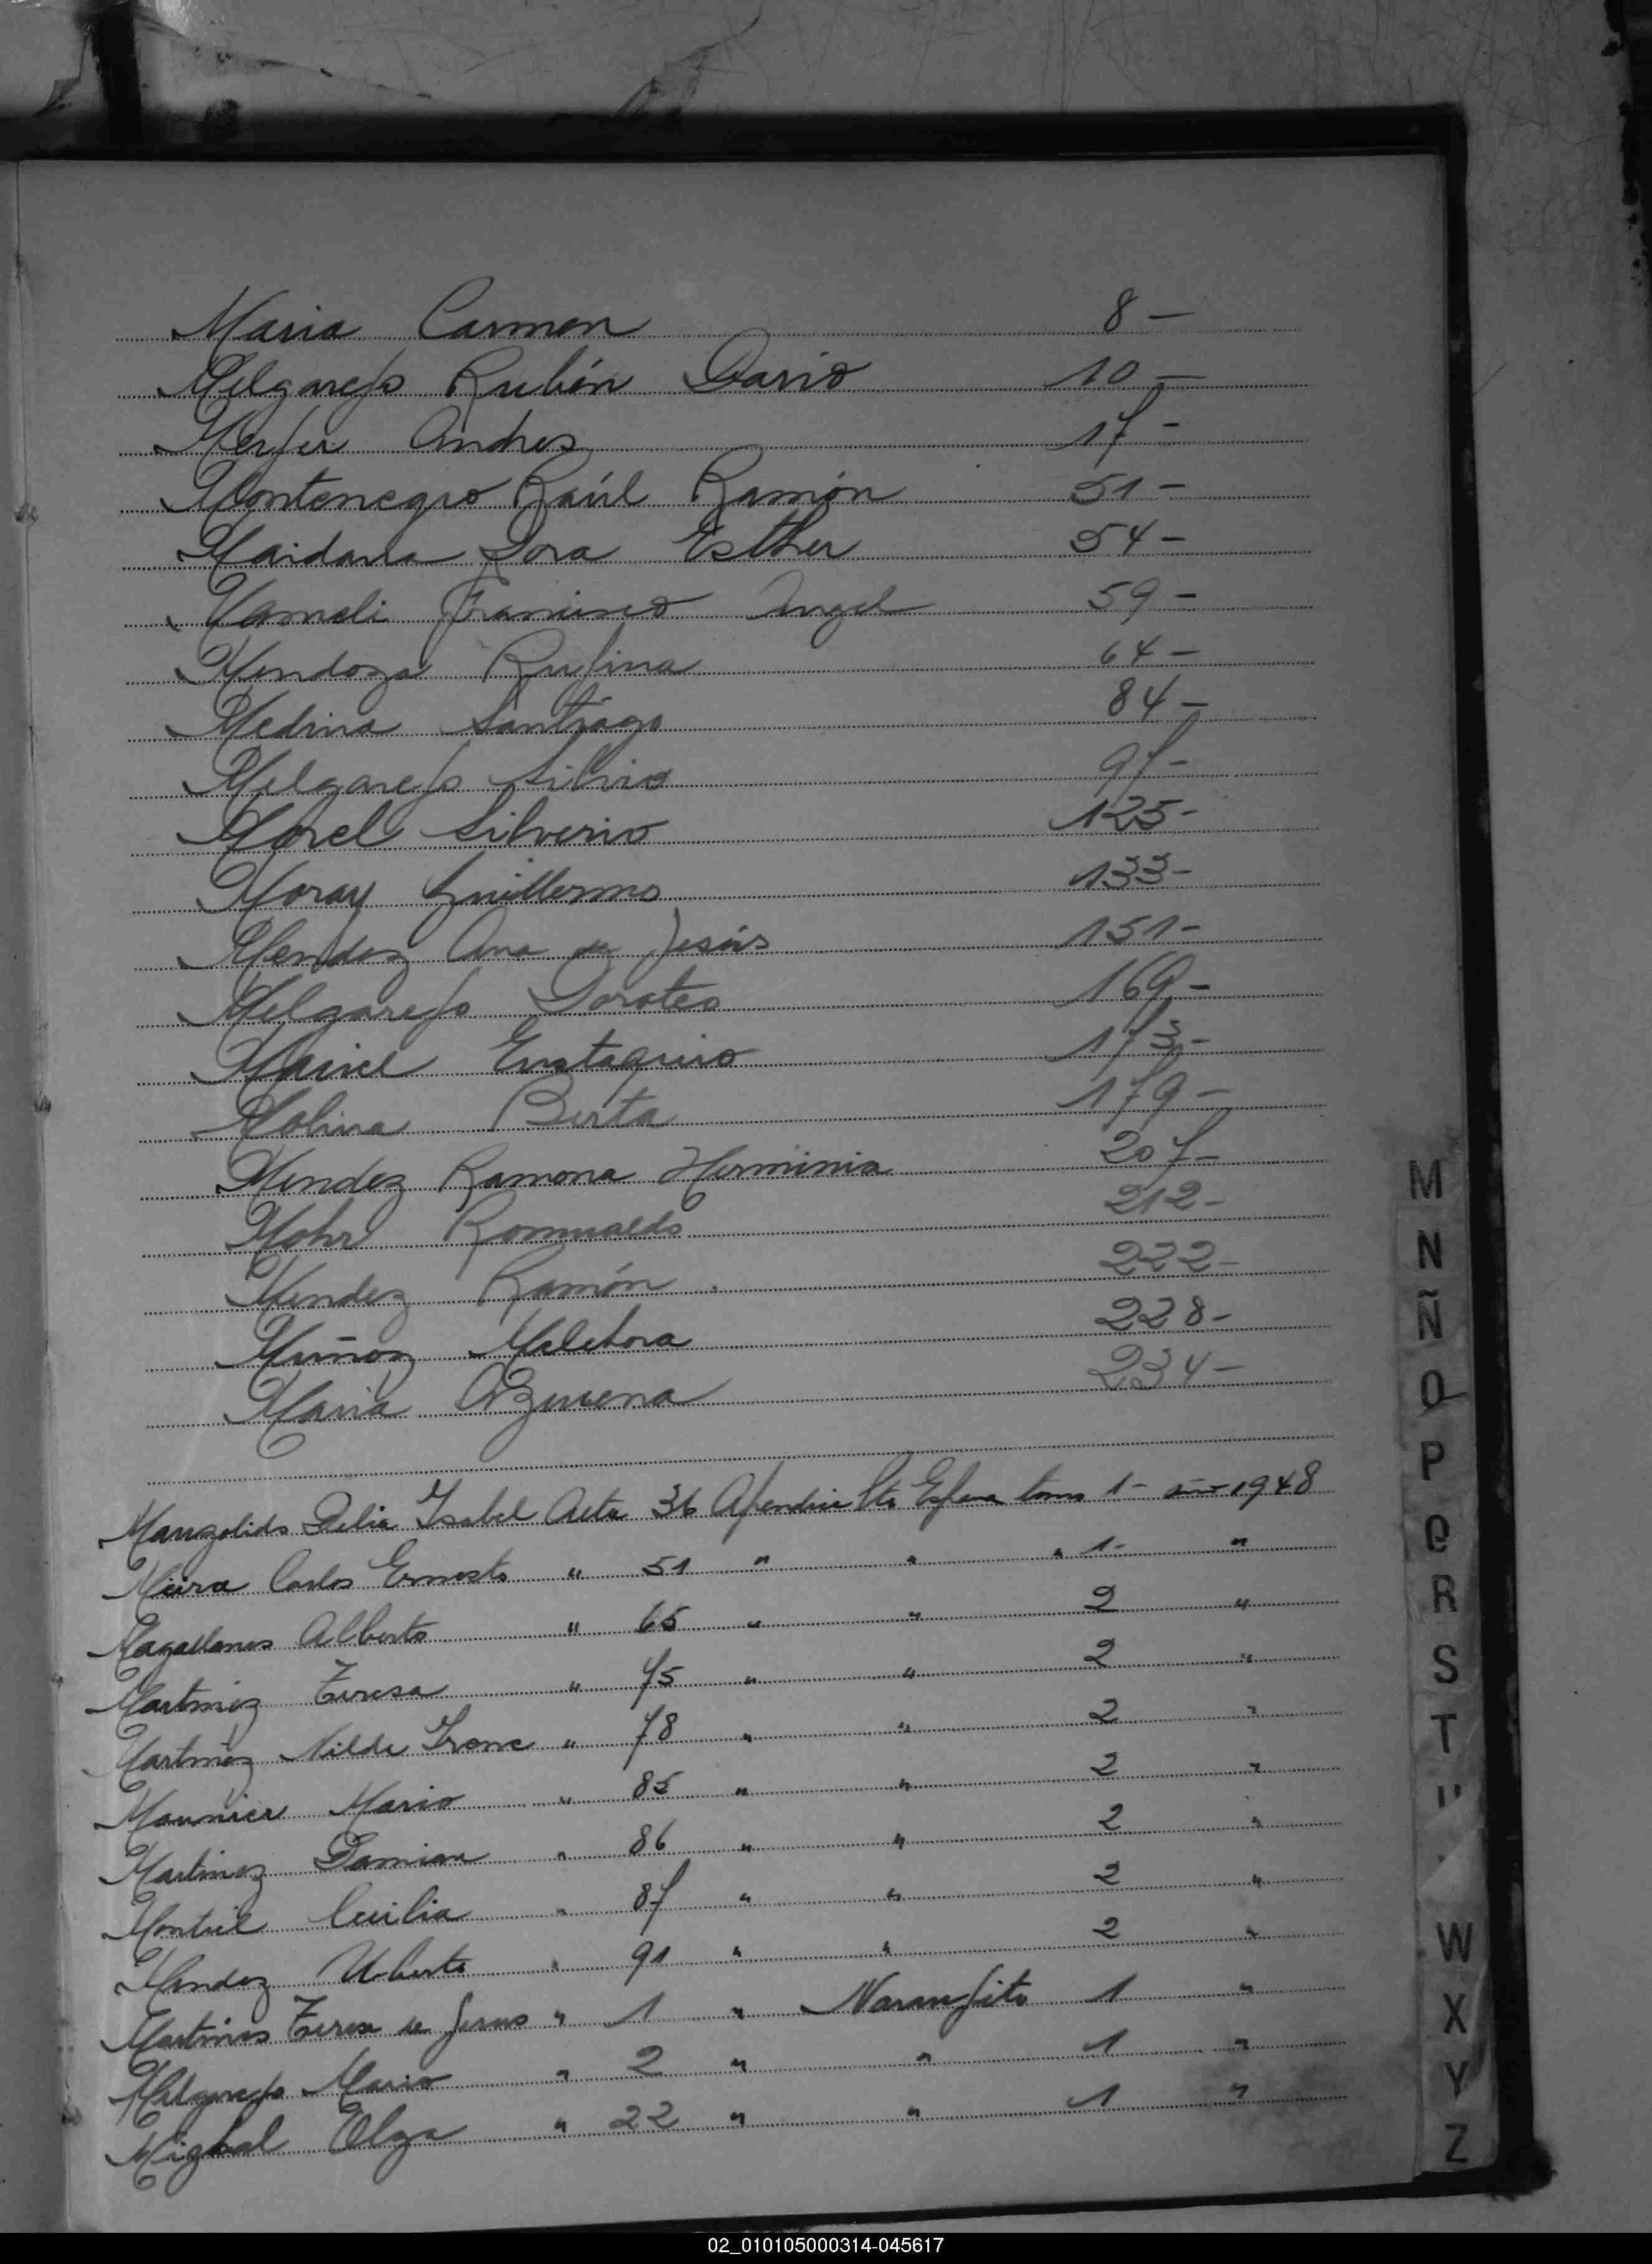 Maria Carmen 8 -
Melgarejo Rubén Dario 10 -
Andres 17 -
Montenegro Raúl Ramón 51 -
Maidana Dora Esther 54 -
Mameli Francisco Angel 59 -
Mendoza Rufina 64 -
Medina Santiago 84 -
Melgarejo Silvio 97 -
Morel Silverio 125 -
Moray Guillermo 133 -
Mendez Ana de Jesús 151 -
Melgarejo Doroteo 169 -
Maciel Eustaquio 173 -
Molina Berta 179 -
Mendez Ramona Herminia 207 -
Mohr Romualdo 212 -
Mendez Ramón 222 -
Muñoz Melchora 228 -
Maria Azucena 234 -
Delia Isabel Acta 36 Apendice Sto tomo 1 - año 1948
Carlos Ernesto " 51 " " " 1 - "
Magallanes Alberto " 65 " " 2 "
Martinez Teresa " 75 " " 2 "
Martinez Nilda Irene " 78 " " 2 "
Maunier Mario " 85 " " 2 "
Martinez Damian " 86 " " 2 "
Montiel Cecilia " 87 " " 2 "
Mendez Uberto " 91 " " 2 "
Martines Teresa de Jesus " 1 " Naranjito 1 "
Melgarejo Mario " 2 " " 1 "
Olga " 22 " " 1 "
M
N
Ñ
O
P
Q
R
S
T
W
X
Y
Z
02_010105000314-045617